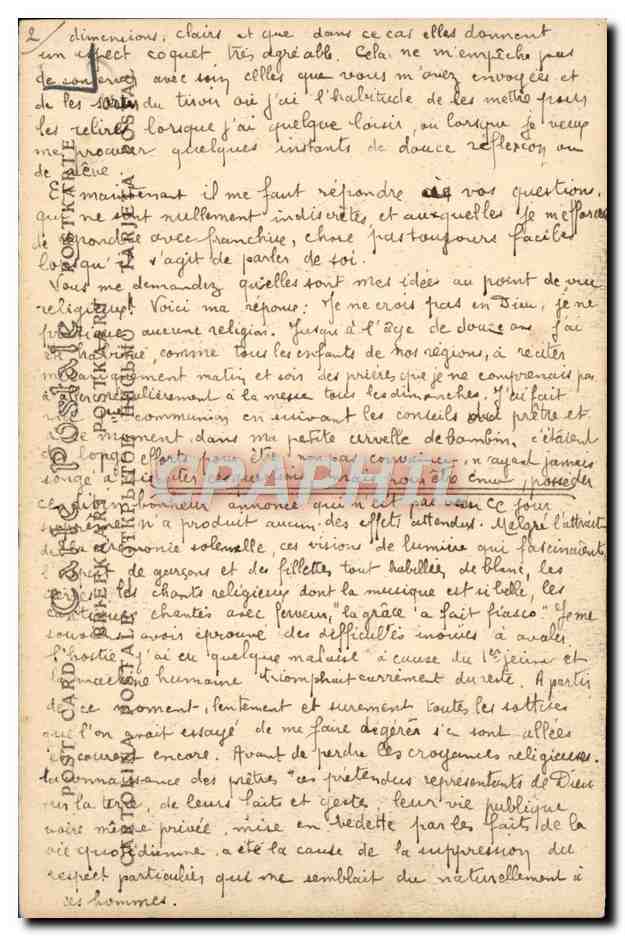 2/ dimensions, clairs et que dans ce cas elles donnent
un aspect coquet très agréable. Cela ne m'empêche pas
de conserver avec soin celles que vous m'avez envoyées et
de les sortir du tiroir où j'ai l'habitude de les mettre pour
les relire lorsque j'ai quelque loisir ou lorsque je veux
me procurer quelques instants de douce reflexion ou
de rêve.
Et maintenant il me faut répondre à vos questions,
qui ne sont nullement indiscrètes et auxquelles je m'efforce
de répondre avec franchise, chose pas toujours facile
lorsqu'il s'agit de parler de soi.
Vous me demandez quelles sont mes idées au point de vue
religieux. Voici ma réponse: Je ne crois pas en Dieu, je ne
pratique aucune religion. Jusqu'à l'âge de douze ans j'ai
comme tous les enfants de nos régions, à réciter
matin et soir des prières que je ne comprenais pas
régulièrement à la messe tous les dimanches. J'ai fait
communion en suivant les conseils du prêtre et
à ce moment, dans ma petite cervelle de bambin, c'étaient
de longs efforts pour être non pas convaincu, n'ayant jamais
songé à mais pour être ému, posséder
ce bonheur annoncé qui n'est pas venu. Ce jour
n'a produit aucun des effets attendus. Malgré l'attrait
de la cérémonie solennelle, ces visions de lumière qui fascinaient,
de garçons et de fillettes tout habillés de blanc, les
les chants religieux dont la musique est si belle, les
cantiques chantés avec ferveur, "la grâce a fait fiasco". Je me
souviens avoir éprouvé des difficultés inouies à avaler
l'hostie, j'ai eu quelque malaise à cause du 1er jeûne et
la machine humaine triomphait carrément du reste. A partir
de ce moment, lentement et surement toutes les sottises
que l'on avait essayé de me faire digérer s'en sont allées
et courent encore. Avant de perdre les croyances religieuses.
la connaissance des prêtres "ces prétendus représentants de Dieu
sur la terre, de leurs faits et gestes, leur vie publique
voire même privée, mise en vedette par les faits de la
vie quotidienne, a été la cause de la suppression du
respect particulier qui me semblait du naturellement à
ces hommes.
Carte Postale
POSTKARTE
POST CARD
BRIEFKAART
POSTKAART
CARTOLINA POSTALE
TARJETA POSTAL
CPAPHIL